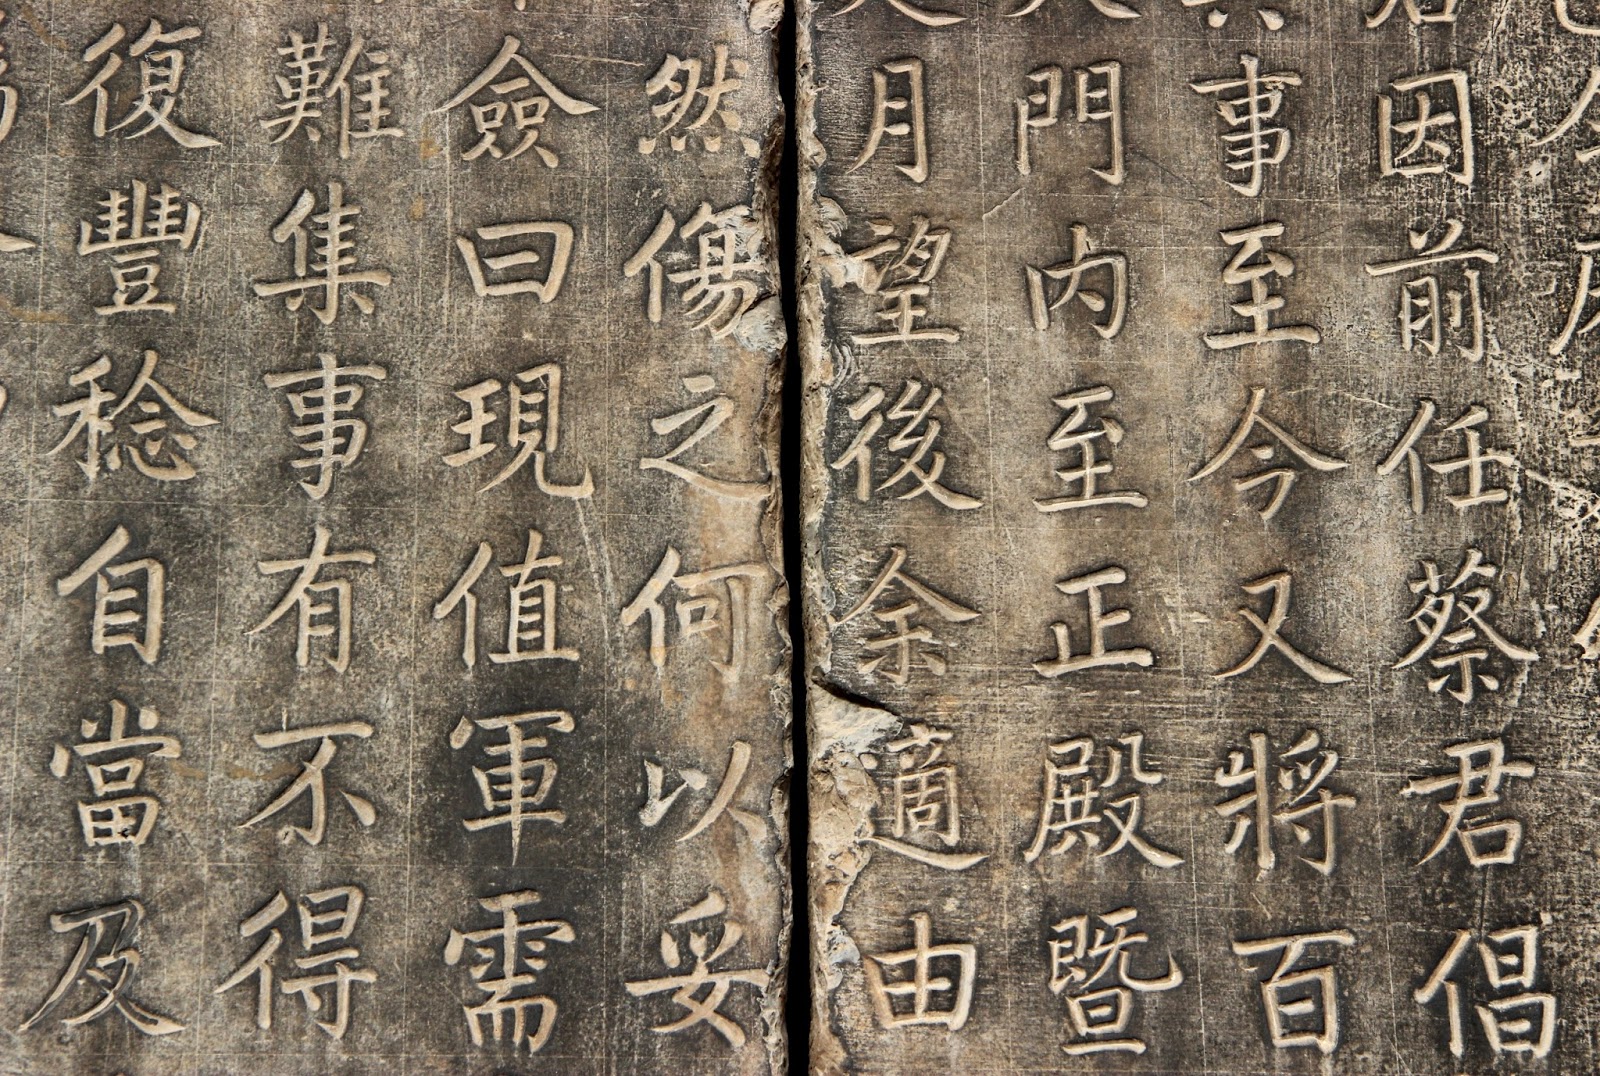 因前任蔡君倡
事至今又將百
門内至正殿暨
月望後余適由
然傷之何以妥
僉曰現值軍需
難集事有不得
復豐稔自當及